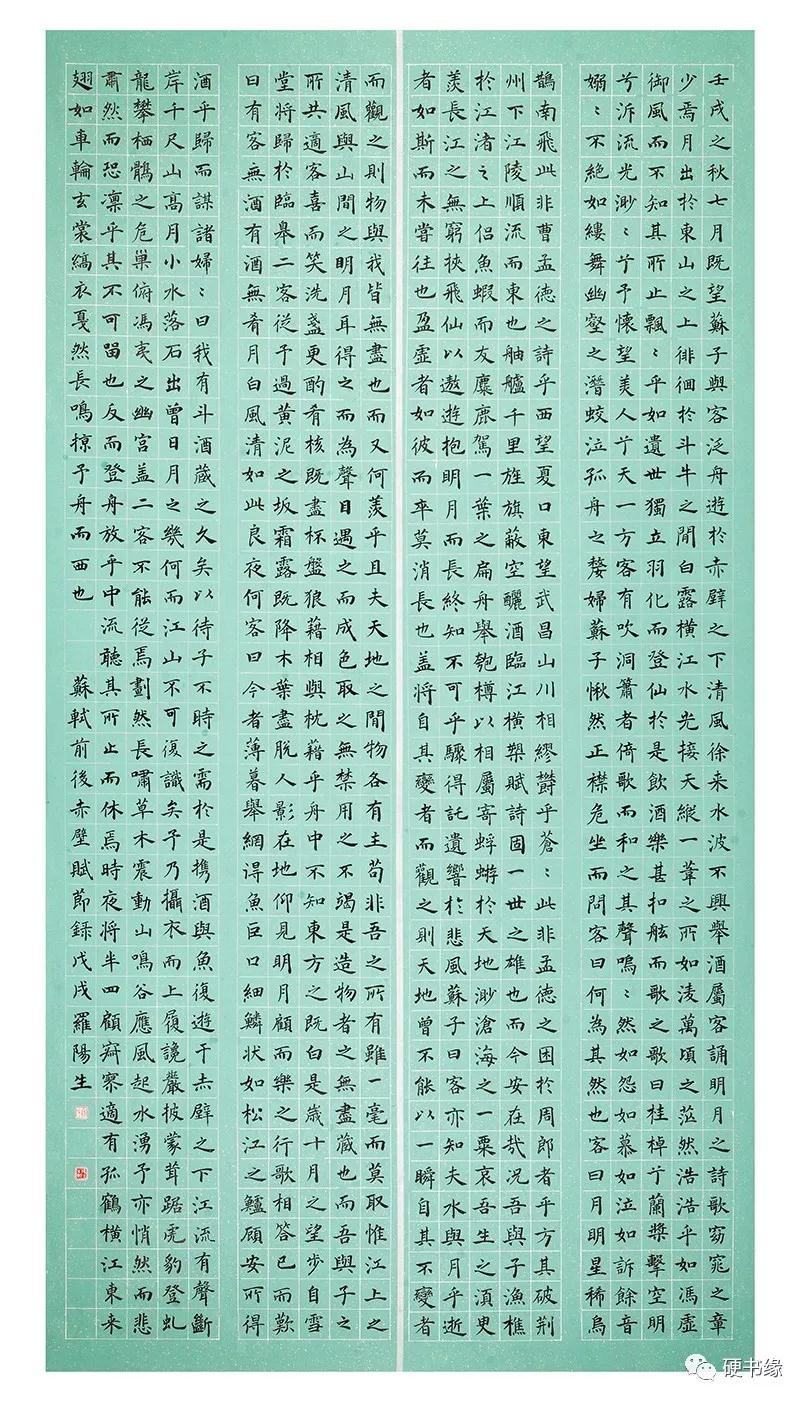 壬戌之秋七月既望蘇子與客泛舟遊於赤壁之下清風徐来水波不興舉酒屬客誦明月之詩歌窈窕之章
少焉月出於東山之上徘徊於斗牛之間白露橫江水光接天縱一葦之所如淩萬頃之茫然浩浩乎如馮虛
御風而不知其所止飄〻乎如遺世獨立羽化而登仙於是飲酒樂甚扣舷而歌之歌曰桂棹兮蘭槳擊空明
兮泝流光渺〻兮予懷望美人兮天一方客有吹洞簫者倚歌而和之其聲嗚〻然如怨如慕如泣如訴餘音
嫋〻不絕如縷舞幽壑之潛蛟泣孤舟之嫠婦蘇子愀然正襟危坐而問客曰何為其然也客曰月明星稀烏
鵲南飛此非曹孟德之詩乎西望夏口東望武昌山川相繆欝乎蒼〻此非孟德之困於周郎者乎方其破荆
州下江陵順流而東也舳艫千里旌旗蔽空釃酒臨江橫槊賦詩固一世之雄也而今安在哉況吾與子漁樵
於江渚之上侶魚蝦而友麋鹿駕一葉之扁舟舉匏樽以相屬寄蜉蝣於天地渺滄海之一粟哀吾生之須臾
羨長江之無窮挾飛仙以遨遊抱明月而長終知不可乎驟得託遺響於悲風蘇子曰客亦知夫水與月乎逝
者如斯而未嘗往也盈虛者如彼而卒莫消長也盖將自其變者而觀之則天地曾不能以一瞬自其不變者
而觀之則物與我皆無盡也而又何羨乎且夫天地之間物各有主苟非吾之所有雖一毫而莫取惟江上之
清風與山間之明月耳得之而為聲目遇之而成色取之無禁用之不竭是造物者之無盡藏也而吾與子之
所共適客喜而笑洗盞更酌肴核既盡杯盤狼藉相與枕藉乎舟中不知東方之既白是歲十月之望步自雪
堂將歸於臨舉二客從予過黄泥之坂霜露既降木葉盡脫人影在地仰見明月顧而樂之行歌相答已而歎
曰有客無酒有酒無肴月白風清如此良夜何客曰今者薄暮舉網得魚巨口細鱗状如松江之鱸顧安所得
酒乎歸而謀諸婦〻曰我有斗酒藏之久矣以待子不時之需於是携酒與魚復遊于赤壁之下江流有聲斷
岸千尺山高月小水落石出曾日月之幾何而江山不可復識矣予乃攝衣而上履巉巖披蒙茸踞虎豹登虬
龍攀栖鶻之危巢俯馮夷之幽宮盖二客不能從焉劃然長嘯草木震動山鳴谷應風起水湧予亦悄然而悲
肅然而恐凛乎其不可留也反而登舟放乎中流聽其所止而休焉時夜將半四顧寂寥適有孤鶴橫江東来
翅如車輪玄裳縞衣戛然長鳴掠予舟而西也 蘇軾前後赤壁賦節録戊戌羅陽生
硬书缘